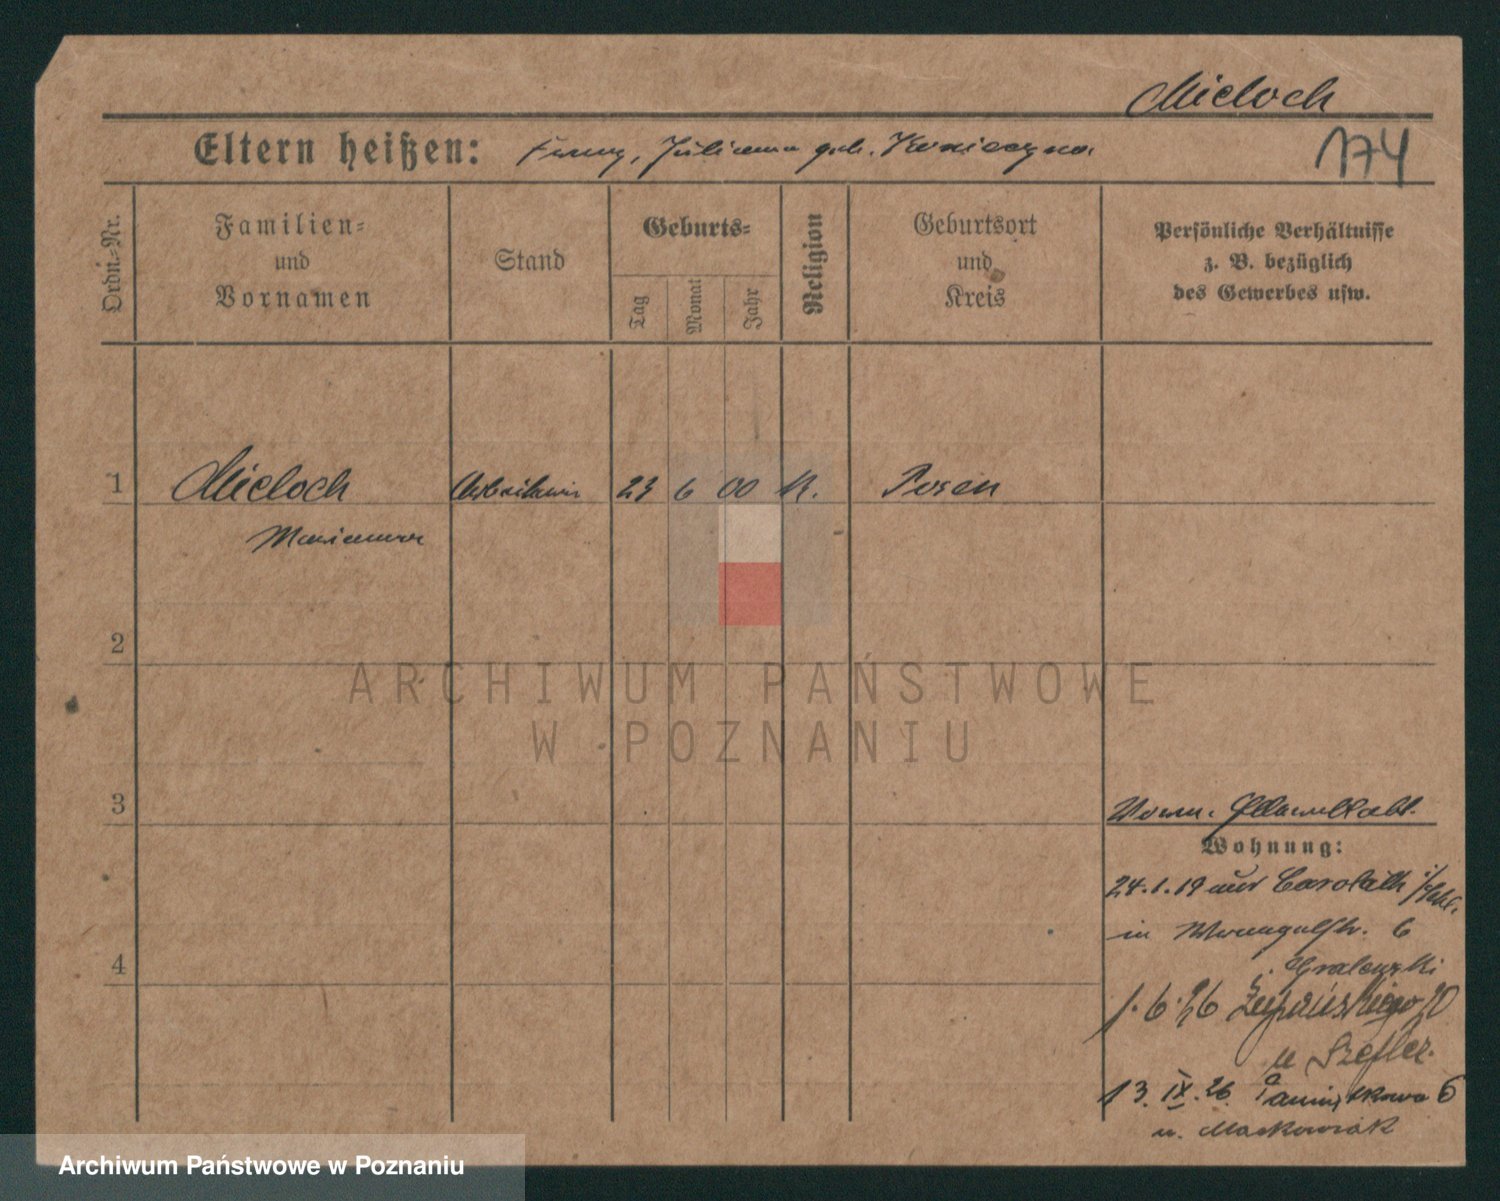 Mieloch
Eltern heißen: Franz, Julianna geb. Konieczna
174
Ordn.-Nr.
Familien-
und
Vornamen
Stand
Geburts-
Tag
Monat
Jahr
Religion
Geburtsort
und
Kreis
Persönliche Verhältnisse
z. B. bezüglich
des Gewerbes usw.
1 Mieloch Arbeiterin 23 6 00 K. Posen
Marianna
2
ARCHIWUM PAŃSTWOWE
W POZNANIU
3
Wohnung:
24.1.19 aus Carolath
in Wrangelstr. 6
Gralewski
1.6.26 Żupańskiego
u Szefler.
4
13. IX. 26
u. Maćkowiak
Archiwum Państwowe w Poznaniu